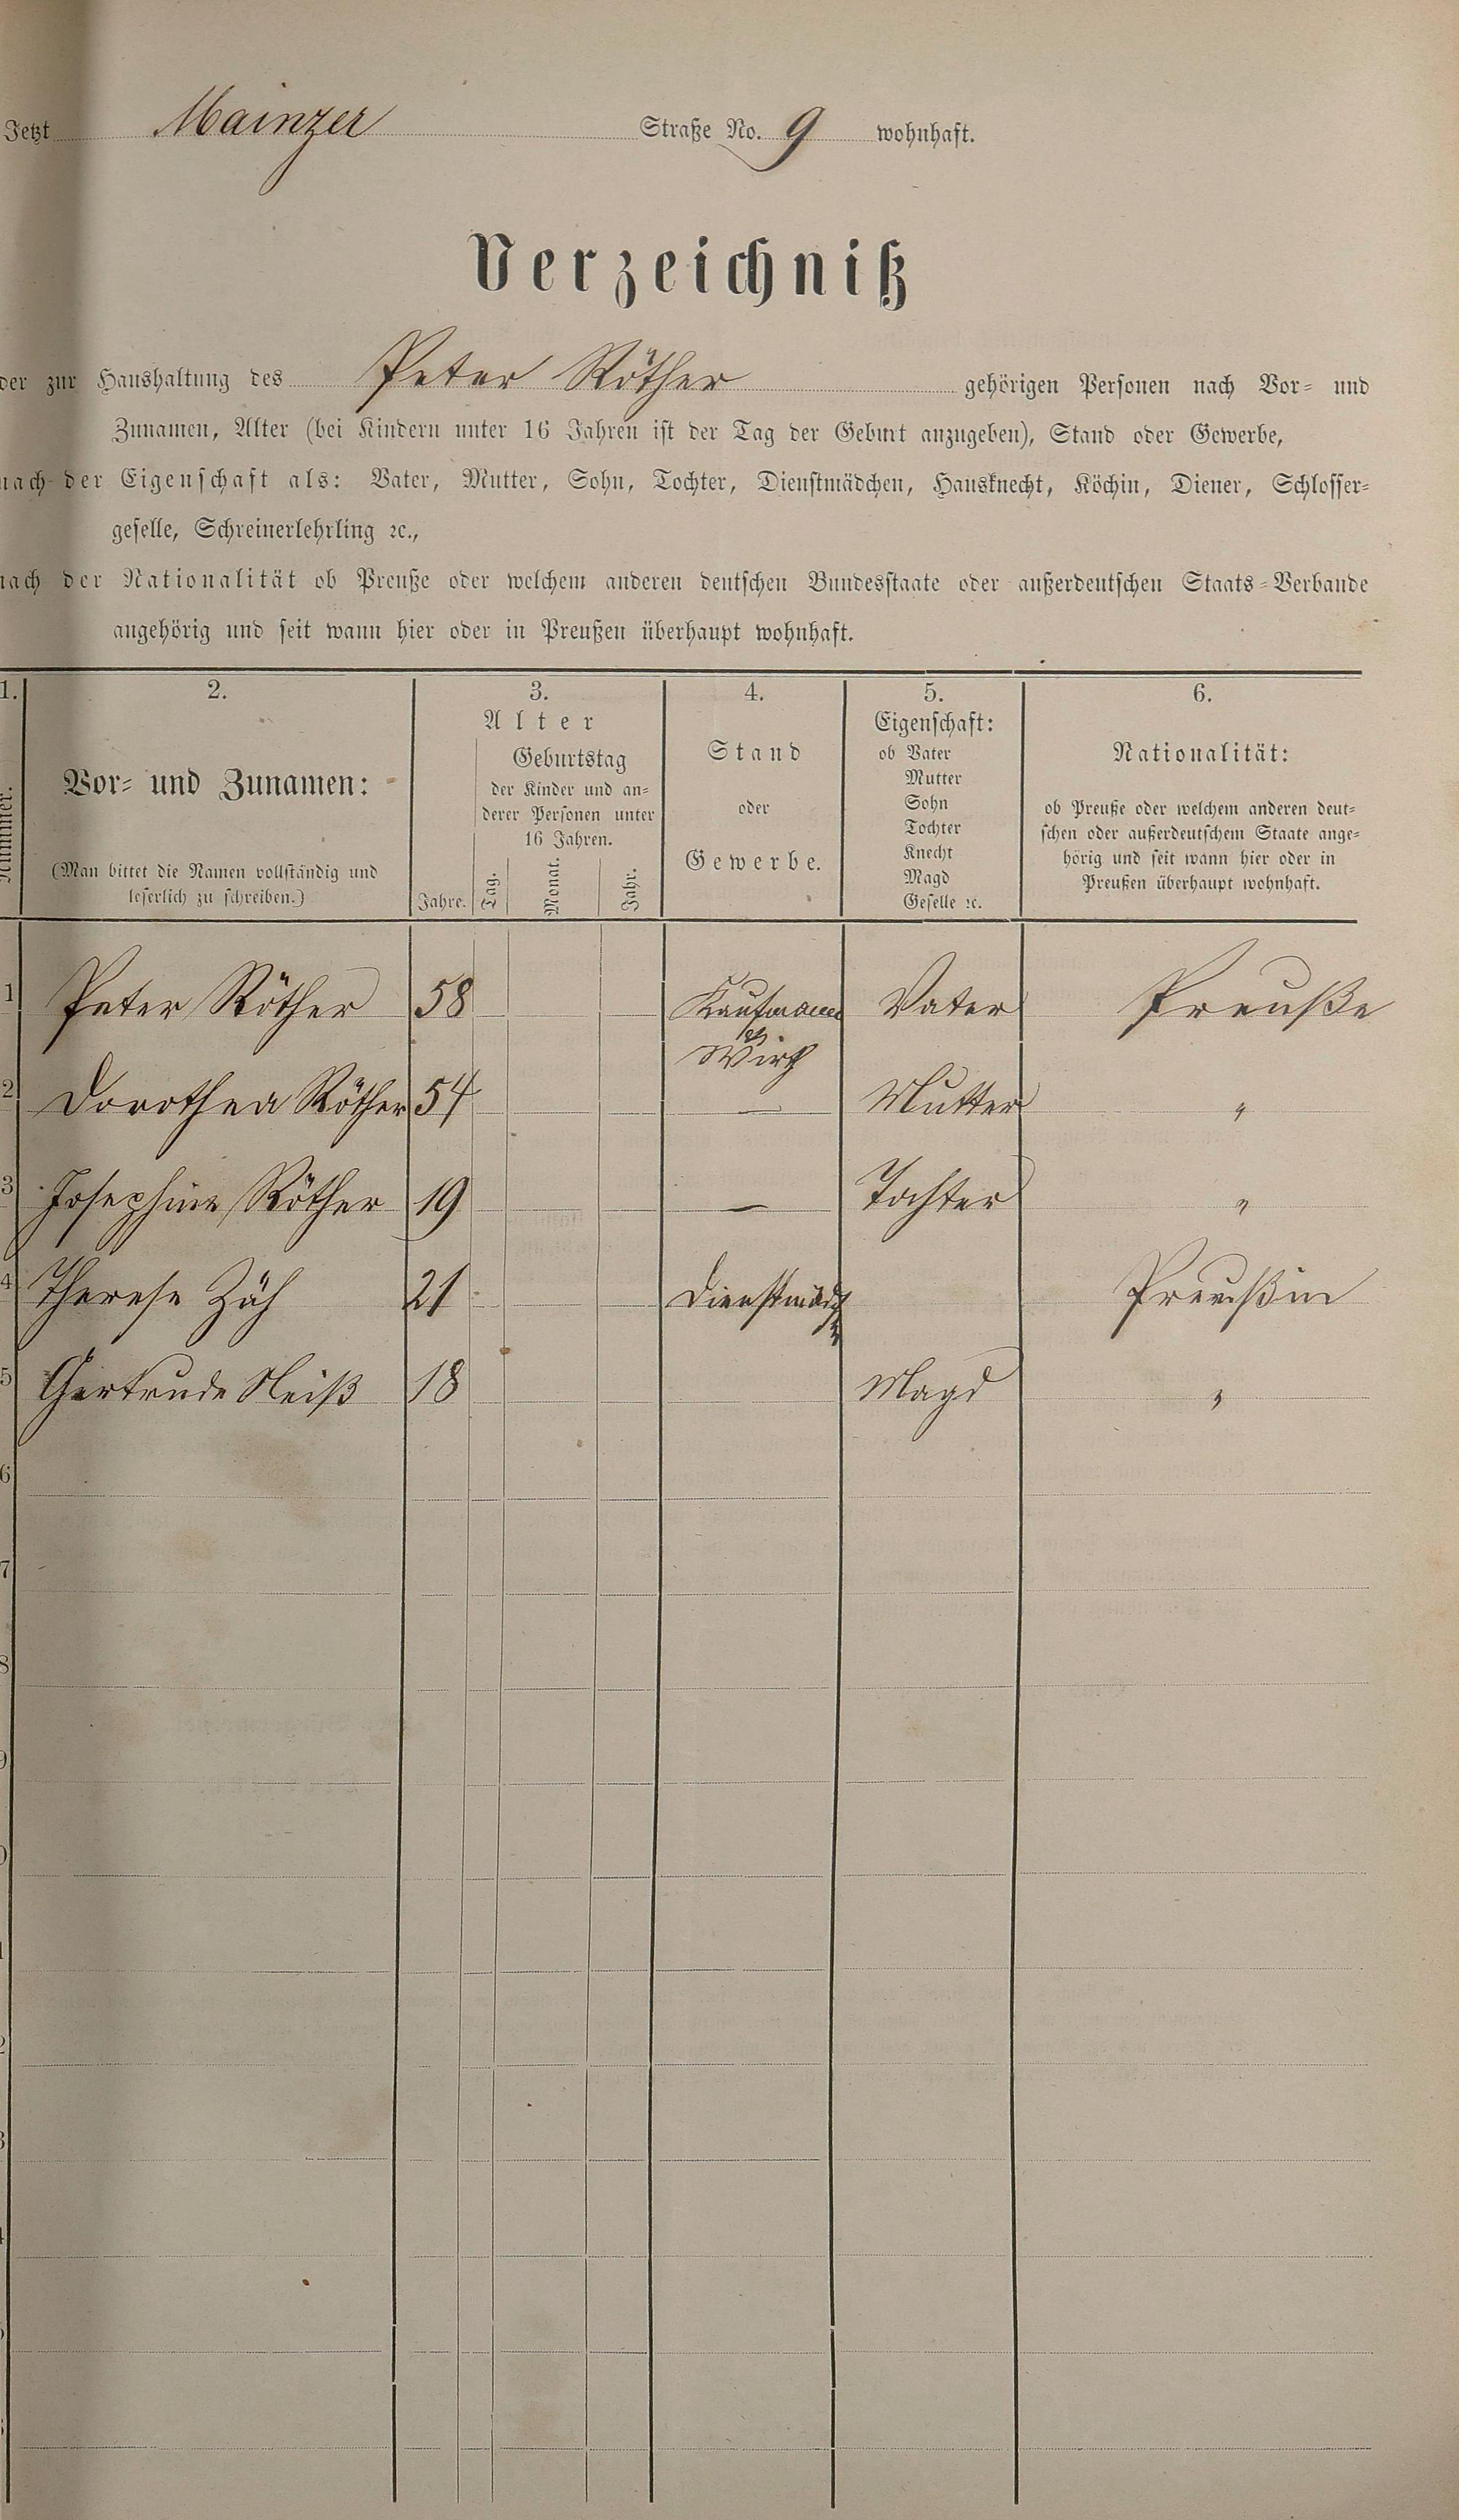 Jetzt Mainzer Straße No. 9 wohnhaft.
Verzeichniß
der zur Haushaltung des Peter Röther gehörigen Personen nach Vor- und
Zunamen, Alter (bei Kindern unter 16 Jahren ist der Tag der Geburt anzugeben), Stand oder Gewerbe,
nach der Eigenschaft als: Vater, Mutter, Sohn, Tochter, Dienstmädchen, Hausknecht, Köchin, Diener, Schlosser-
geselle, Schreinerlehrling ꝛc.,
nach der Nationalität ob Preuße oder welchem anderen deutschen Bundesstaate oder außerdeutschen Staats-Verbande
angehörig und seit wann hier oder in Preußen überhaupt wohnhaft.
1. 2. 3. 4. 5. 6.
Nummer.
Vor- und Zunamen:
(Man bittet die Namen vollständig und
leserlich zu schreiben.)
Alter
Jahre.
Geburtstag
der Kinder und an-
derer Personen unter
16 Jahren.
Tag. Monat. Jahr.
Stand
oder
Gewerbe.
Eigenschaft:
ob Vater
Mutter
Sohn
Tochter
Knecht
Magd
Geselle ꝛc.
Nationalität:
ob Preuße oder welchem anderen deut-
schen oder außerdeutschem Staate ange-
hörig und seit wann hier oder in
Preußen überhaupt wohnhaft.
1 Peter Röther 58 Kaufmann Vater Preuße
Wirth
2 Dorothea Röther 54 — Mutter "
3 Josephine Röther 19 — Tochter "
4 Therese Zäh 21 Dienstmädch Preußin
5 Gertrude 18 Magd "
6
7
8
9
0
1
2
3
4